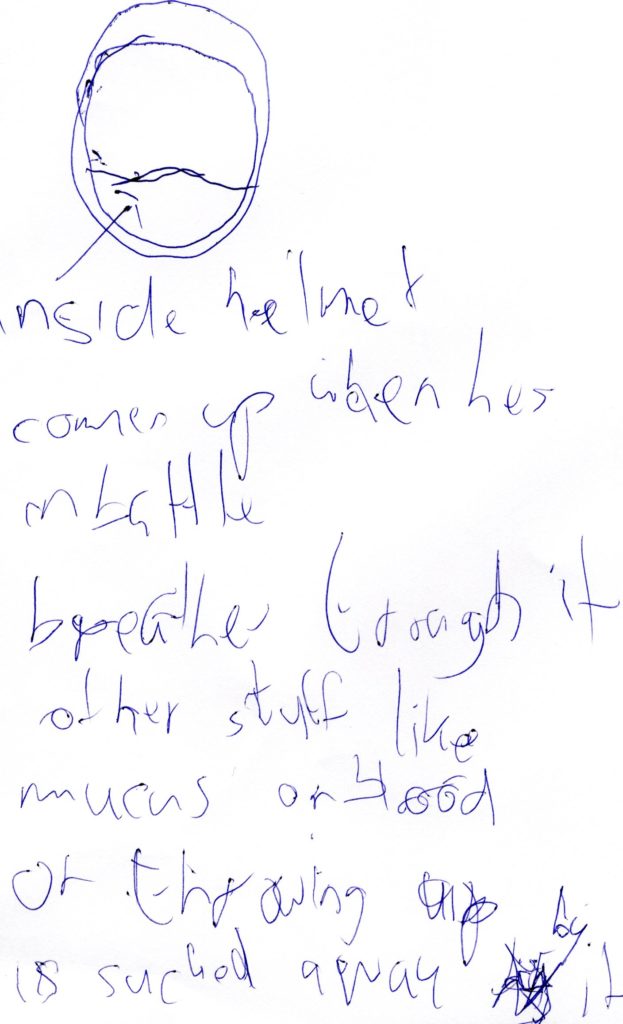 inside helmet
comes up when hes
in battle
breathes trough it
other stuff like
mucus or blood
or throwing up
is sucked away by it